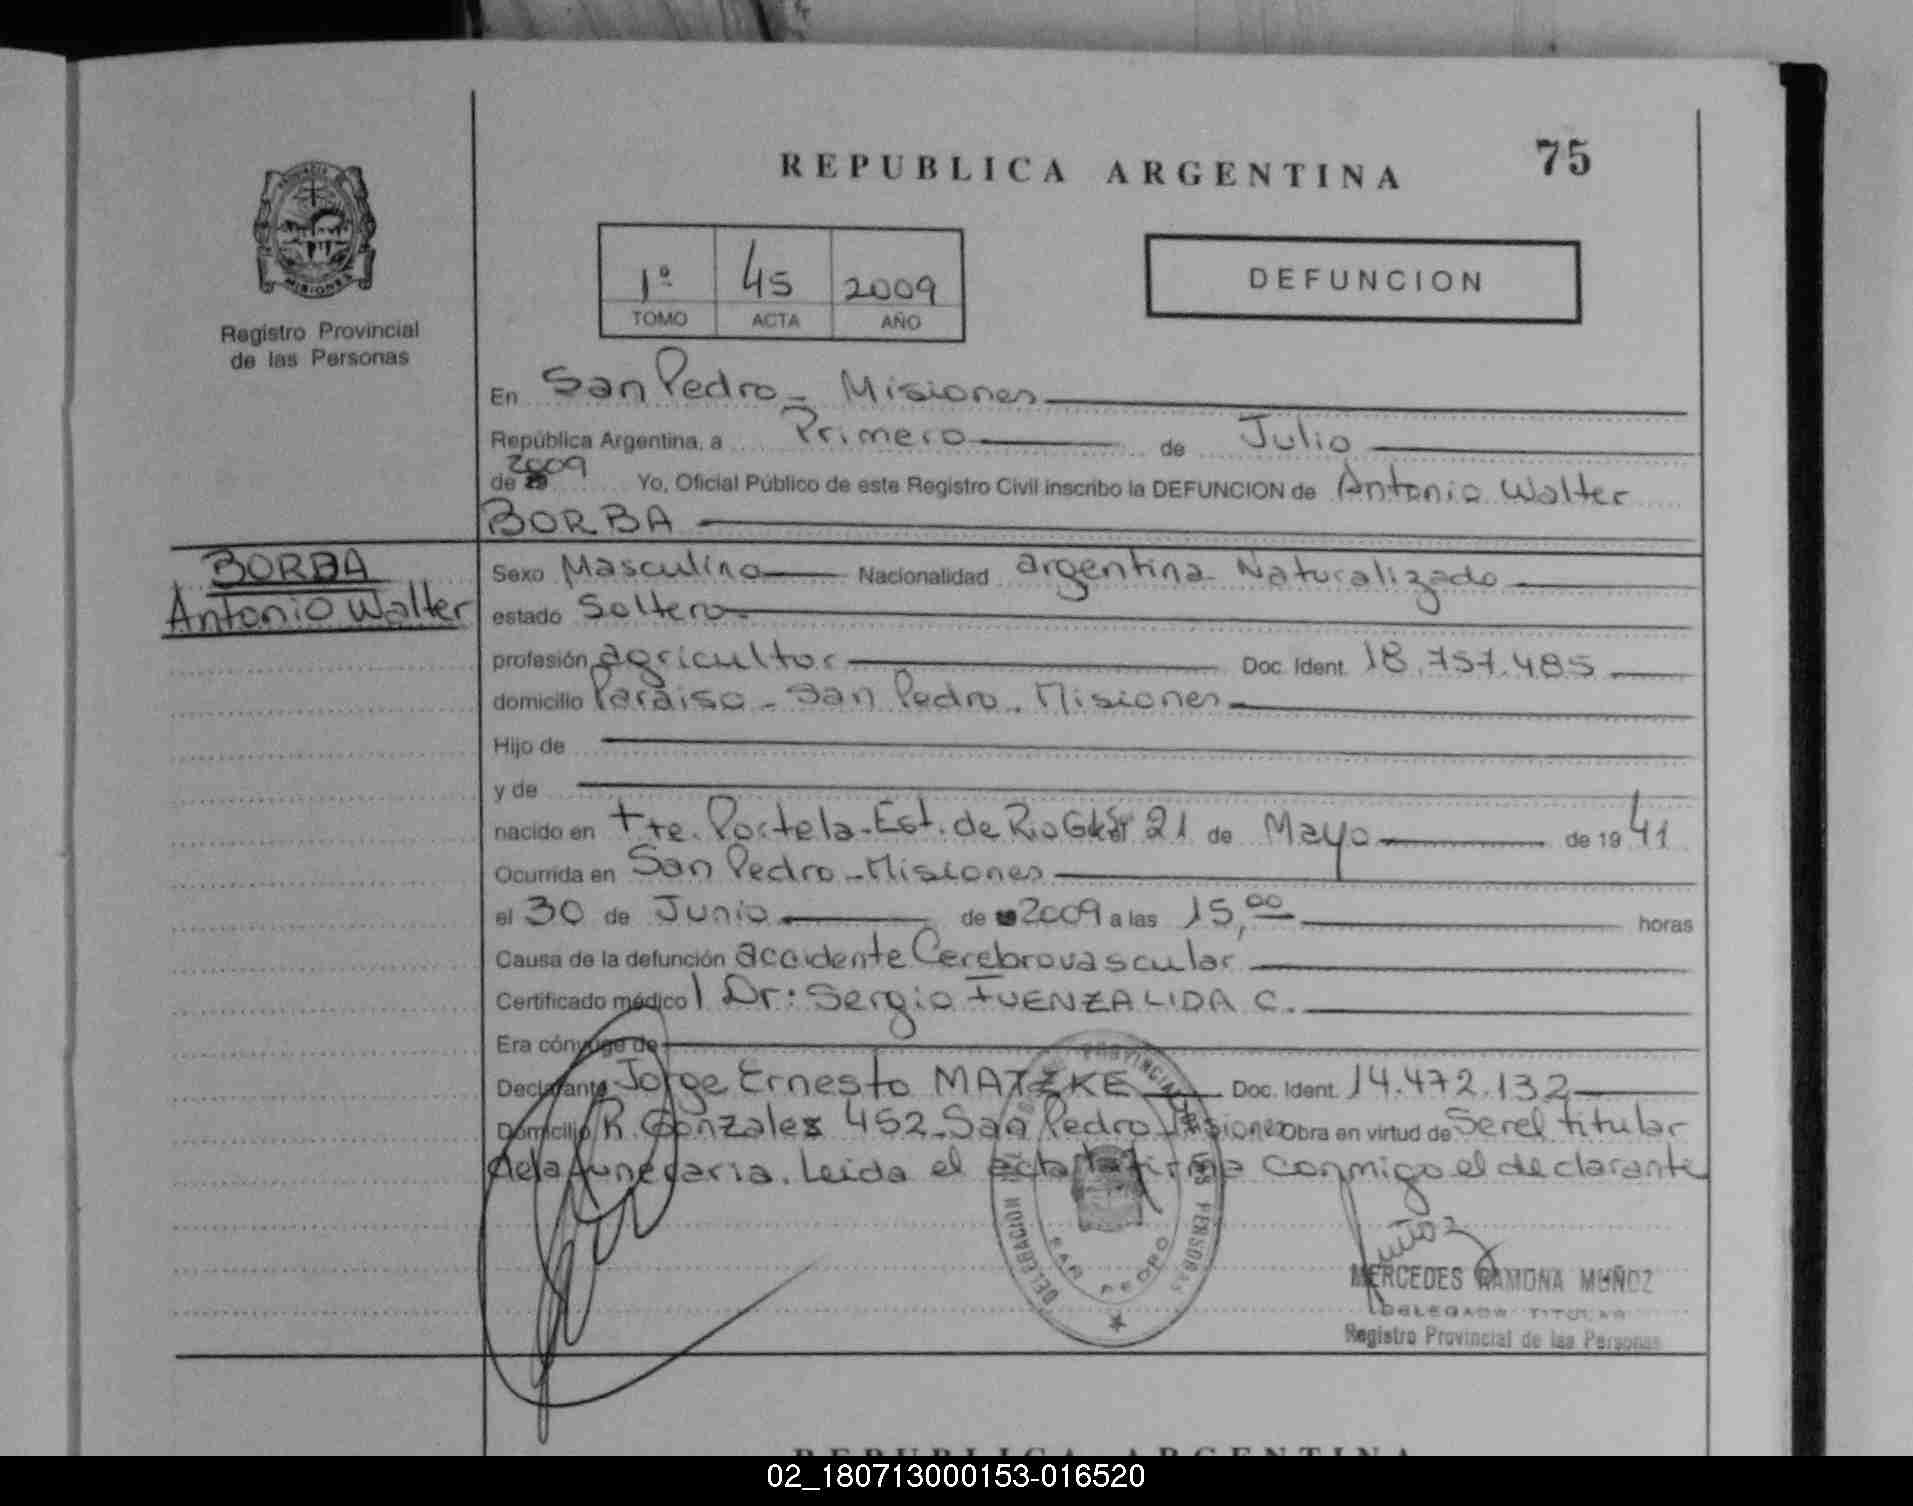 REPUBLICA ARGENTINA
75
MISIONES
Registro Provincial
de las Personas
1º 45 2009
TOMO ACTA AÑO
DEFUNCION
En San Pedro - Misiones
República Argentina, a Primero de Julio
de 2009 Yo, Oficial Público de este Registro Civil inscribo la DEFUNCION de Antonio Walter
BORBA
BORBA
Antonio Walter
Sexo Masculino Nacionalidad argentina Naturalizado
estado Soltero
profesión agricultor Doc. Ident. 18.757.485
domicilio Paraiso - San Pedro - Misiones
Hijo de
y de
nacido en Tte. Portela - Est. de Rio 21 de Mayo de 1941
Ocurrida en San Pedro - Misiones
el 30 de Junio de 2009 a las 15,00 horas
Causa de la defunción accidente Cerebrovascular
Certificado médico Dr: Sergio FUENZALIDA C.
Era cónyuge de
Declarante Jorge Ernesto MATZKE Doc. Ident. 14.472.132
Domicilio R. Gonzales 452 - San Pedro Misiones obra en virtud de Ser el titular
de la funeraria. Leida el acta la firma conmigo el declarante
DELEGACION
PROVINCIAL
PERSONAS
SAN PEDRO
MERCEDES RAMONA MUÑOZ
DELEGADA TITULAR
Registro Provincial de las Personas
REPUBLICA ARGENTINA
02_180713000153-016520